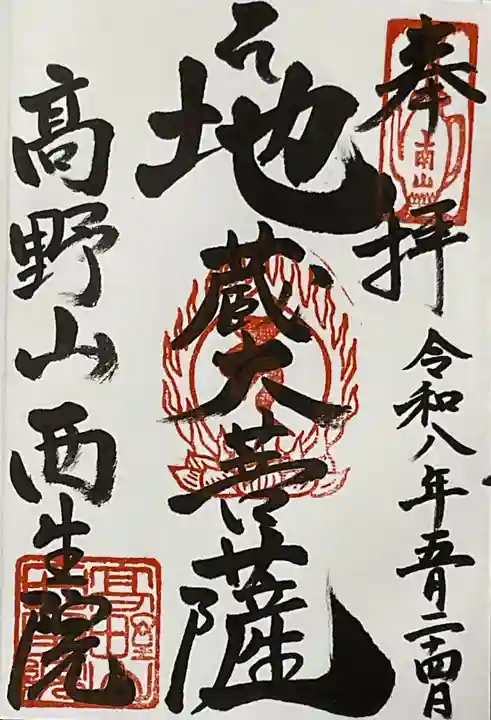 奉拝
南山
令和八年五月二十四日
地蔵大菩薩
高野山西生院